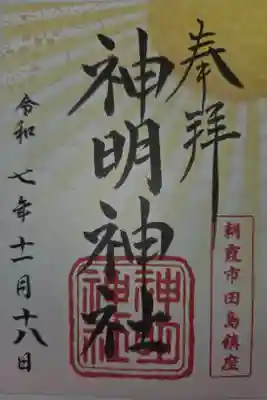 奉拝
朝霞市田島鎮座
神明神社
神明神社
令和七年十一月十八日